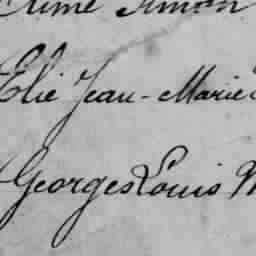 Simon
Elie Jean-Marie
Georges Louis